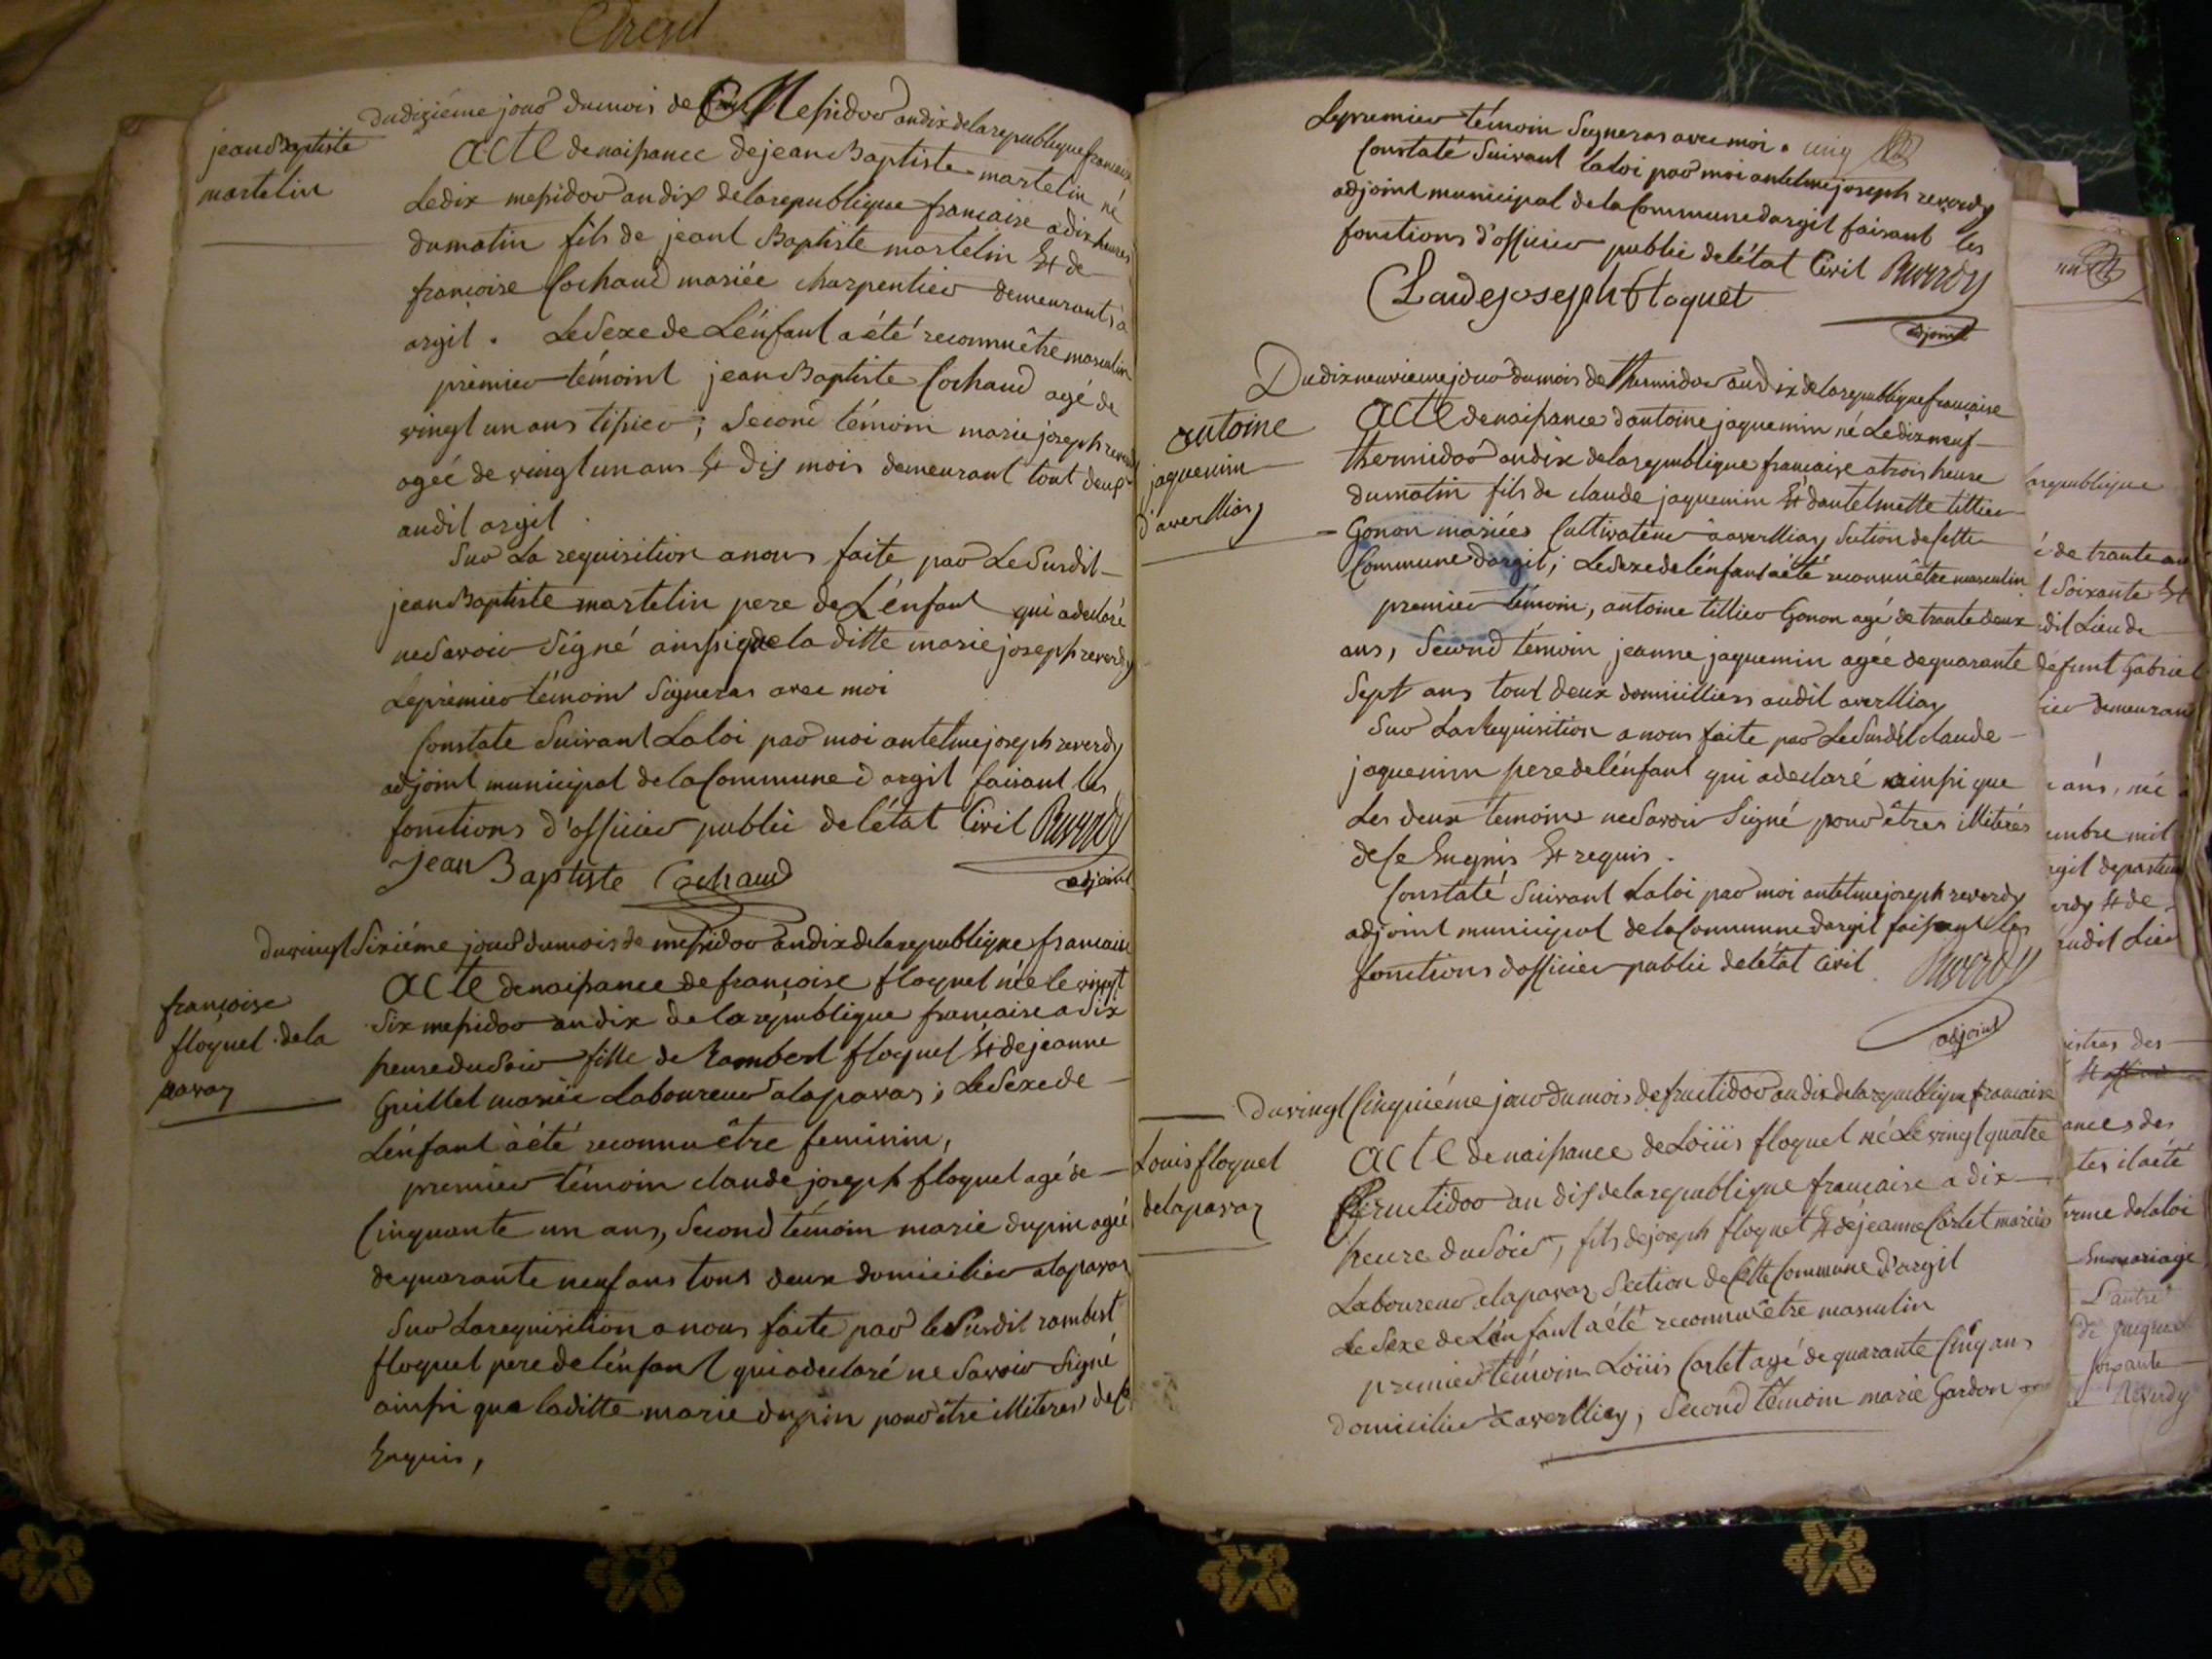 Argil
jean Baptiste
martelin
du dixiéme jour du mois de Messidor an dix de la republique francaise
Acte de naissance de jean Baptiste martelin né
Le dix messidor an dix de la republique francaise a dix heures
du matin fils de jeant Baptiste martelin Et de
francoise Cochaud mariée charpentier demeurants a
argil . Le Sexe de L'énfant a été reconnu être masculin
prémier témoint jean Baptiste Cochaud agé de
vingt un ans tissier ; Second témoin marie joseph reverdy
agée de vingt un ans Et dis mois demeurant tout deux
audit argil
Sur La requisition a nous faite par Le Susdit
jean Baptiste martelin pere de L'énfant qui a declaré
ne Savoir Signé ainssi que la ditte marie joseph reverdy
Le prémier témoin Signeras avec moi
Constate Suivant La loi par moi antelme joseph reverdy
adjoint municipal de la Commune d'argil faisant les
fonctions d'officier public de l'état Civil Reverdy
Jean Baptiste Cochaud
adjoint
du vingt Sixiéme jour du mois de messidor an dix de la republique francaise
francoise
floquet de la
pavaz
Acte de naissance de francoise floquet née le vingt
Six messidor an dix de la republique francaise a dix
heure du Soir fille de Rambert floquet Et de jeanne
Guillet mariée Laboureur a la pavaz ; Le Sexe de
L'énfant à été reconnu être feminin,
premier témoin claude joseph floquet agé de
Cinquante un ans, Second témoin marie dupin agée
de quarante neuf ans tous deux domicilier a la pavaz
Sur La requisition a nous faite par le Susdit rambert
floquet pere de l'énfant qui a declaré ne Savoir Signé
ainssi que la ditte marie dupin pour être illiteres de Ce
Enquis,
Le premier témoin Signeras avec moi .
Constaté Suivant la loi par moi antelme joseph reverdy
adjoint municipal de la Commune d'argil faisant les
fonctions d'officier public de l'état Civil Reverdy
Claude joseph floquet
adjoint
Du dix neuvieme jour du mois de thermidor an dix de la republique francaise
antoine
jaquemin
d'averlliaz
Acte de naissance d'antoine jaquemin né Le dix neuf
thermidor an dix de la republique francaise a trois heure
du matin fils de claude jaquemin Et d'antelmette tillier
Gonon mariées Cultivateur a averlliaz Section de Cette
Commune d'argil ; Le Sexe de l'énfant a été reconnu être masculin
premier témoin, antoine tillier Gonon agé de trante deux
ans, Second témoin jeanne jaquemin agée de quarante
Sept ans tout deux domicilliers audit averlliaz
Sur La Requisition a nous faite par Le Susdit claude
jaquemin pere de l'énfant qui a declaré ainssi que
Les deux témoins ne Savoir Signé pour êtres illiterés
de Ce Enquis Et requis .
Constaté Suivant La loi par moi antelme joseph reverdy
adjoint municipal de la Commune d'argil faissant les
fonctions d'officier public de l'état Civil Reverdy
adjoint
du vingt Cinquiéme jour du mois de fructidor an dix de la republique francaise
Louis floquet
de la pavaz
Acte de naissance de Loüis floquet né Le vingt quatre
fructidor an dis de la republique francaise a dix
heure du Soir, fils de joseph floquet Et de jeanne Carlet mariés
Laboureur a la pavaz Section de Cette Commune d'argil
Le Sexe de L'énfant a été reconnu être masculin
premier témoin Loüis Carlet agé de quarante Cinq ans
domicilier a averlliaz ; Second témoin marie Gardon
la republique
é de trante an
t Soixante Et
dit Lieu de
défunt Gabriel
ier demeurant
ans, né
embre mil
argil departem
erdy Et de
audit Lieu
istres des
ances des
tes il a été
orme de la loi
En mariage
L'autre
de jacques
soixante
Reverdy